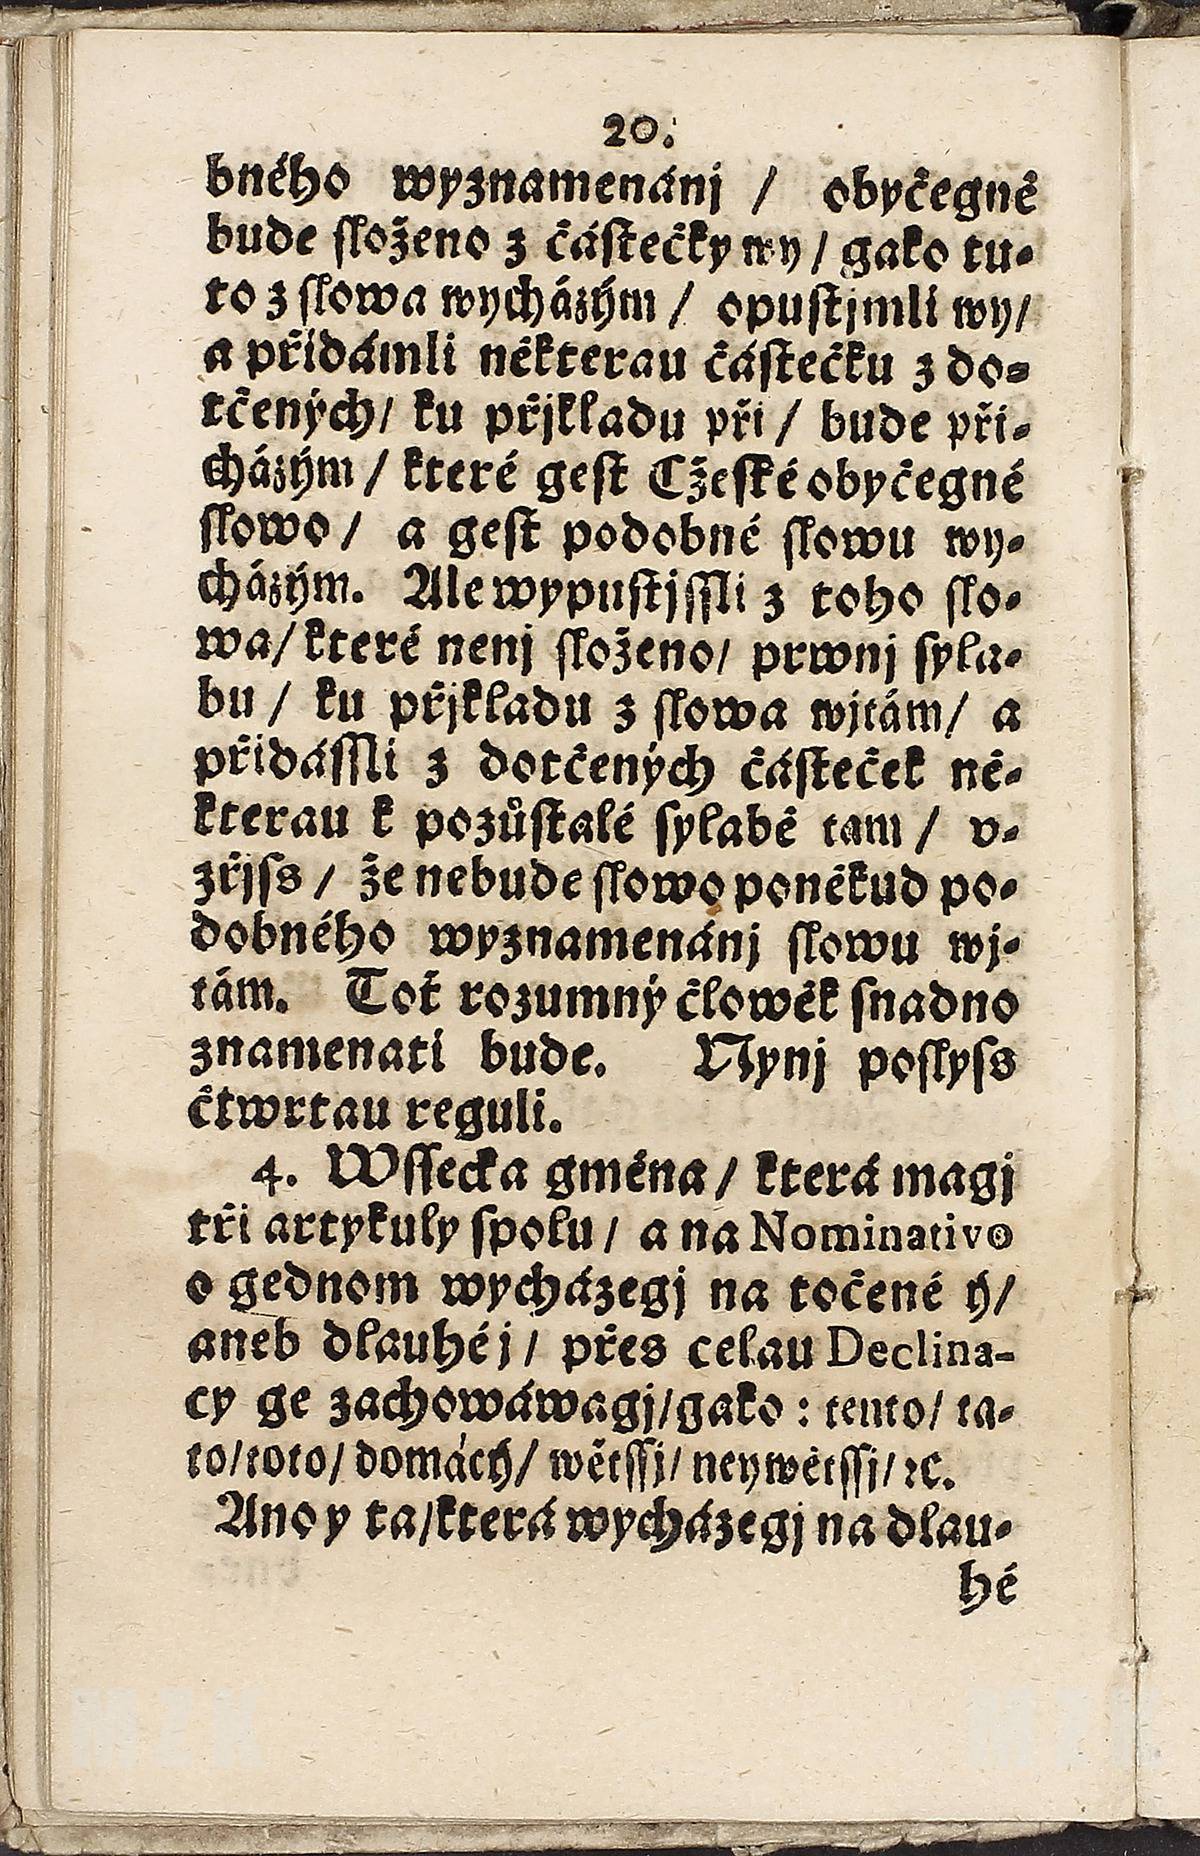 20.
bného wyznamenánj / obyčegně
bude ſloženo z částečky wy / gako tu-
to z ſlowa wycházým / opustjmli wy /
a přidámli některau částečku z do-
tčených / ku přjkladu při / bude při-
cházým / které gest Cžeſké obyčegné
ſlowo / a gest podobné ſlowu wy-
cházým. Ale wypustjſſli z toho ſlo-
wa / které nenj ſloženo / prwnj ſyla-
bu / ku přjkladu z ſlowa wjtám / a
přidáſſli z dotčených částeček ně-
kterau k pozůstalé ſylabě tam / v-
zřjſs / že nebude ſlowo poněkud po-
dobného wyznamenánj ſlowu wj-
tám. Toť rozumný člowěk ſnadno
znamenati bude. Nynj poſlyſs
čtwrtau reguli.
4. Wſſecka gména / která magj
tři artykuly ſpolu / a na Nominativo
o gednom wycházegj na točené ý /
aneb dlauhé j / přes celau Declina-
cy ge zachowáwagj / gako : tento / ta-
to / toto / domácý / wětſſj / neywětſſj / ꝛc.
Ano y ta / která wycházegj na dlau-
hé